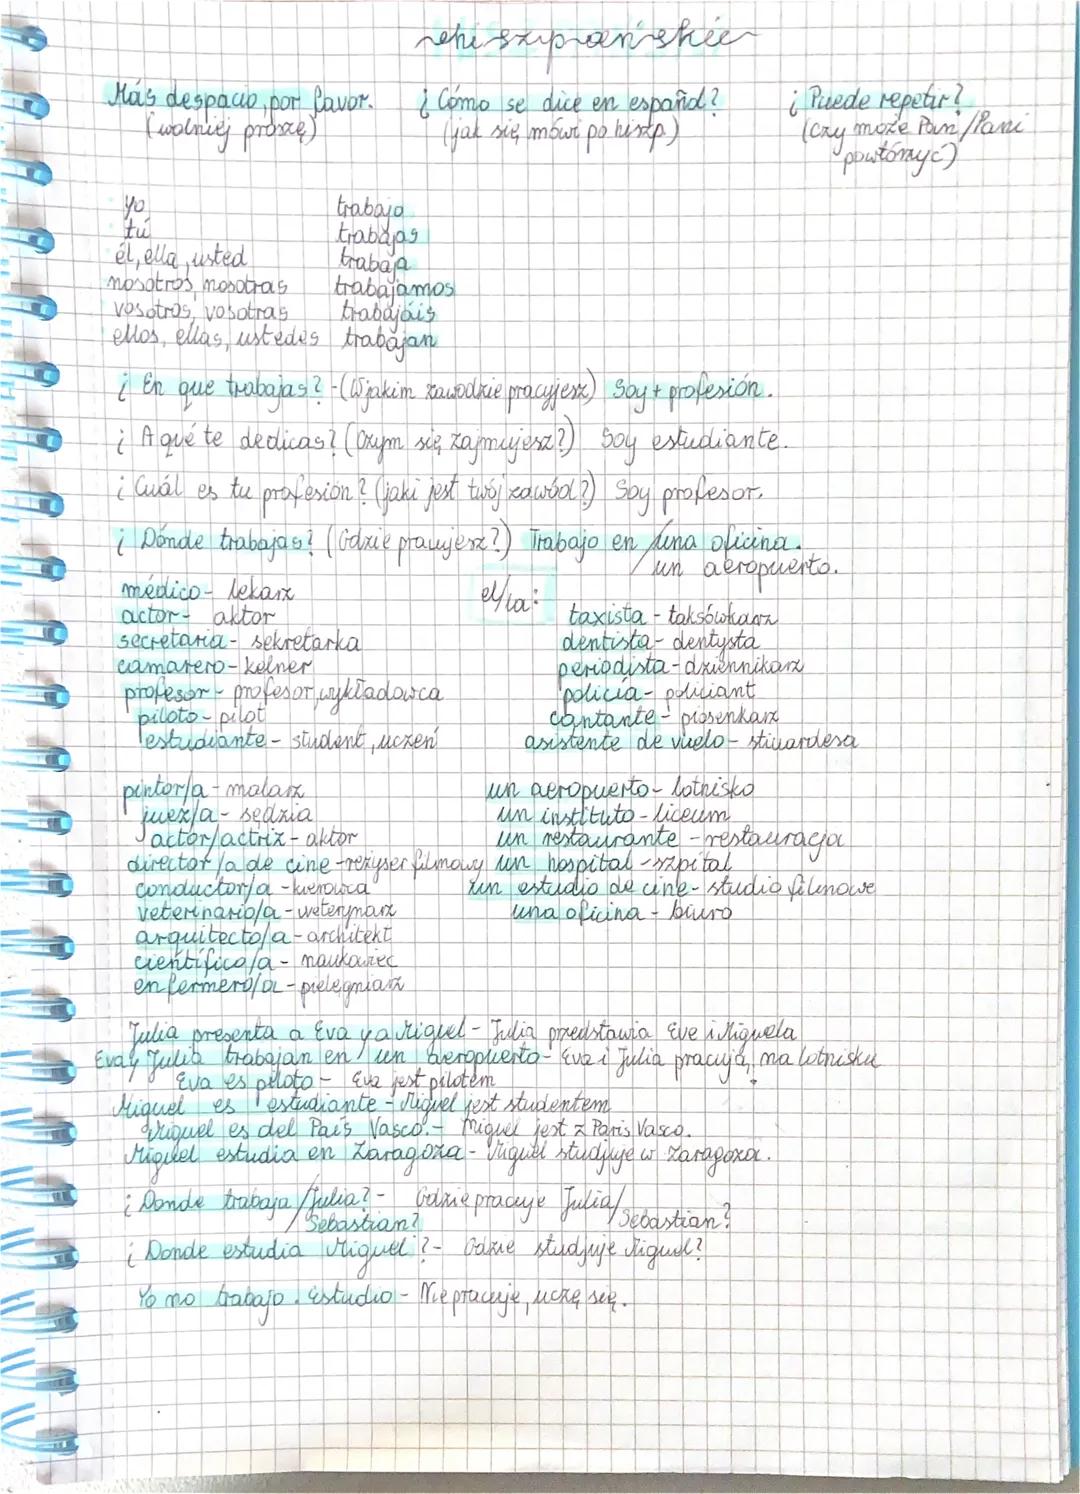 ~hiszpański~
Más despacio, por favor. ¿Cómo se dice en español? ¿Puede repetir?
(wolniej proszę) (jak się mówi po hiszp.) (czy może Pan/Pani
powtórzyć)
yo trabajo
tú trabajas
él, ella, usted trabaja
nosotros, nosotras trabajamos
vosotros, vosotras trabajáis
ellos, ellas, ustedes trabajan
¿En que trabajas? - (W jakim zawodzie pracujesz) Soy + profesión.
¿A qué te dedicas? (Czym się zajmujesz?) Soy estudiante.
¿Cuál es tu profesión? (jaki jest twój zawód?) Soy profesor.
¿Dónde trabajas? (Gdzie pracujesz?) Trabajo en / una oficina.
/ un aeropuerto.
médico - lekarz el/la:
actor - aktor taxista - taksówkarz
secretaria - sekretarka dentista - dentysta
camarero - kelner periodista - dziennikarz
profesor - profesor, wykładowca policía - policjant
piloto - pilot cantante - piosenkarz
estudiante - student, uczeń asistente de vuelo - stiuardesa
pintor/a - malarz un aeropuerto - lotnisko
juez/a - sędzia un instituto - liceum
actor/actriz - aktor un restaurante - restauracja
director/a de cine - reżyser filmowy un hospital - szpital
conductor/a - kierowca un estudio de cine - studio filmowe
veterinario/a - weterynarz una oficina - biuro
arquitecto/a - architekt
científico/a - naukowiec
enfermero/a - pielęgniarz
Julia presenta a Eva y a Miguel - Julia przedstawia Eve i Miguela
Eva y Julia trabajan en un aeropuerto - Eva i Julia pracują na lotnisku
Eva es piloto - Eva jest pilotem
Miguel es estudiante - Miguel jest studentem
Miguel es del País Vasco. - Miguel jest z Paris Vasco.
Miguel estudia en Zaragoza - Miguel studiuje w Zaragoza.
¿Donde trabaja / Julia? - Gdzie pracuje Julia/
Sebastian? Sebastian?
¿Donde estudia Miguel? - Gdzie studjuje Miguel?
Yo no trabajo. Estudio - Nie pracuję, uczę się.